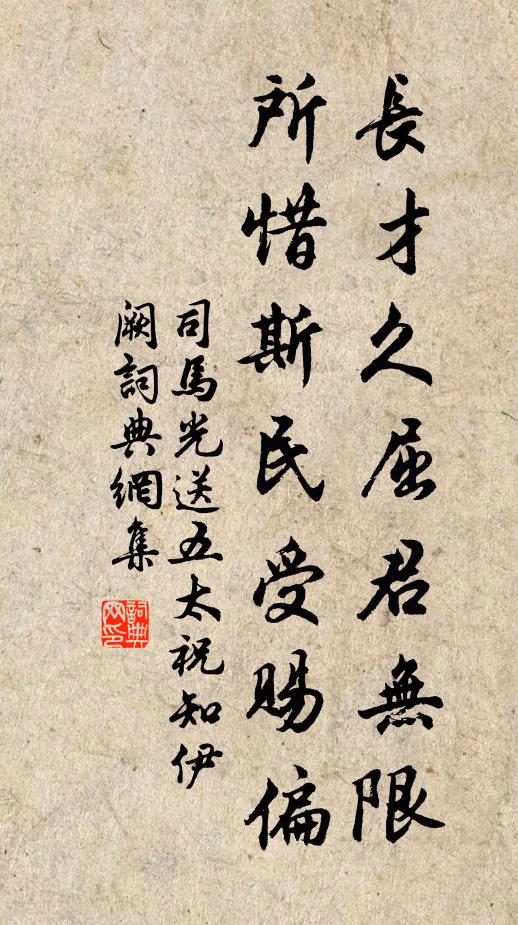 長才久屈君無限
所惜斯民受賜偏
司馬光送五太祝知伊
闕詞典網集
詞典网印